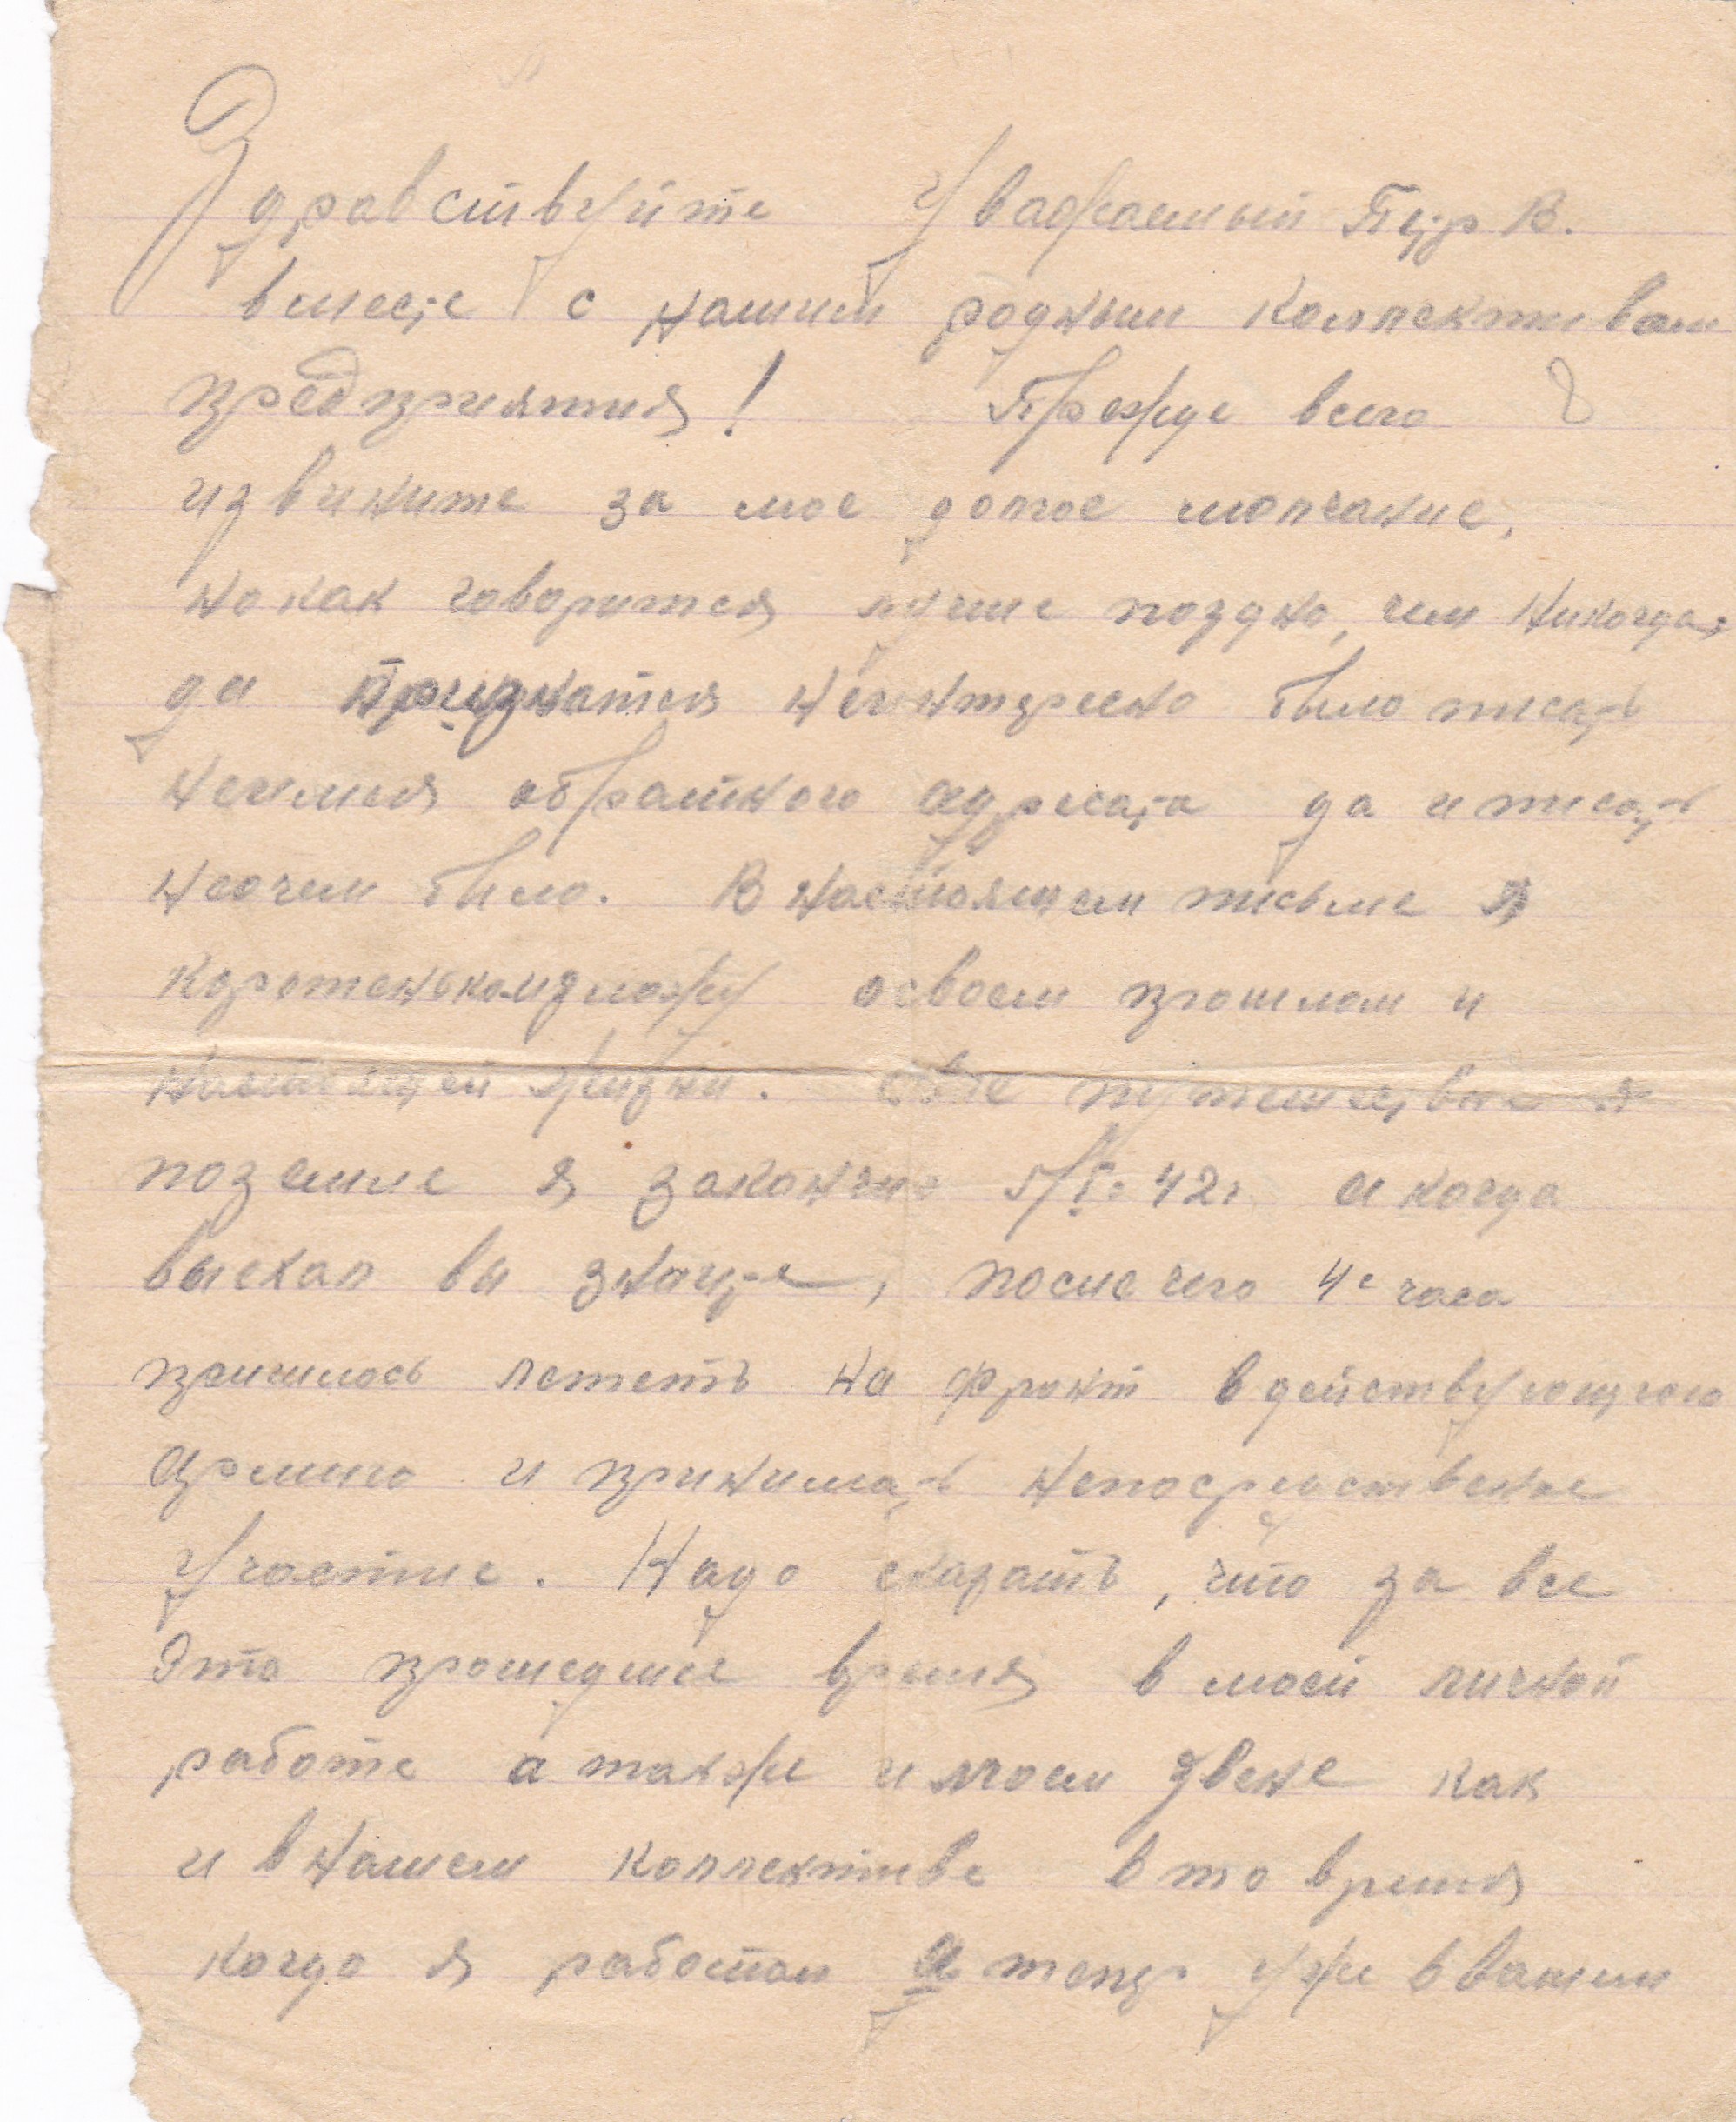 Здравствуйте Уважаемый Петр В.
вместе с нашим родным коллективом
предприятия! Прежде всего
извините за мое долгое молчание,
но как говорится лучше поздно, чем никогда,
да признатся неинтересно было писать
неимея обратного адресата да и писать
неочем было. В настоящем письме я
коротенько изложу освоем прошлом и
настоящей жизни. Свое путешествие
поземле я закончил 42г. а когда
выехал вы знаете, после чего 4е часа
пришлось лететь на фронт вдействующею
армию и принимать непосредственое
участие. Надо сказать, что за все
Это прошедшее время в моей личной
работе а также и моем звене как
и внашем коллективе вто время
когда я работал а теперь уже ввашем